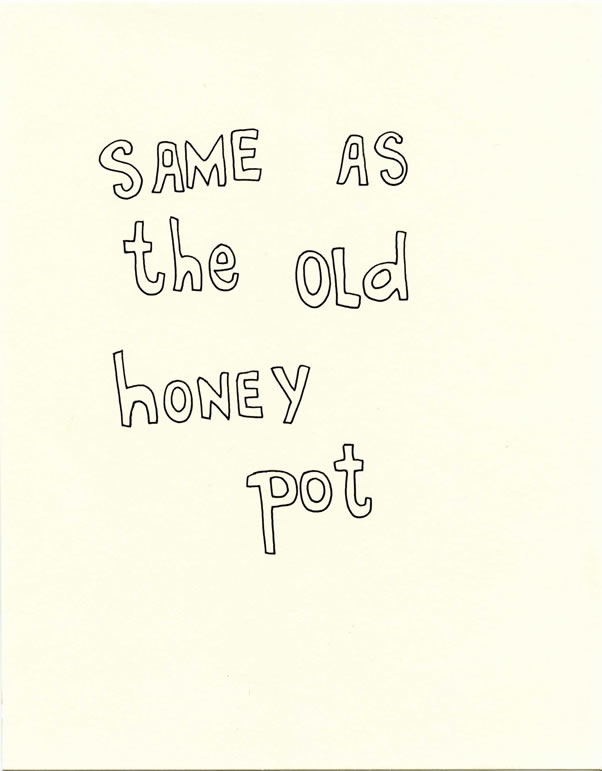 SAME AS
the OLd
hONEY
pot